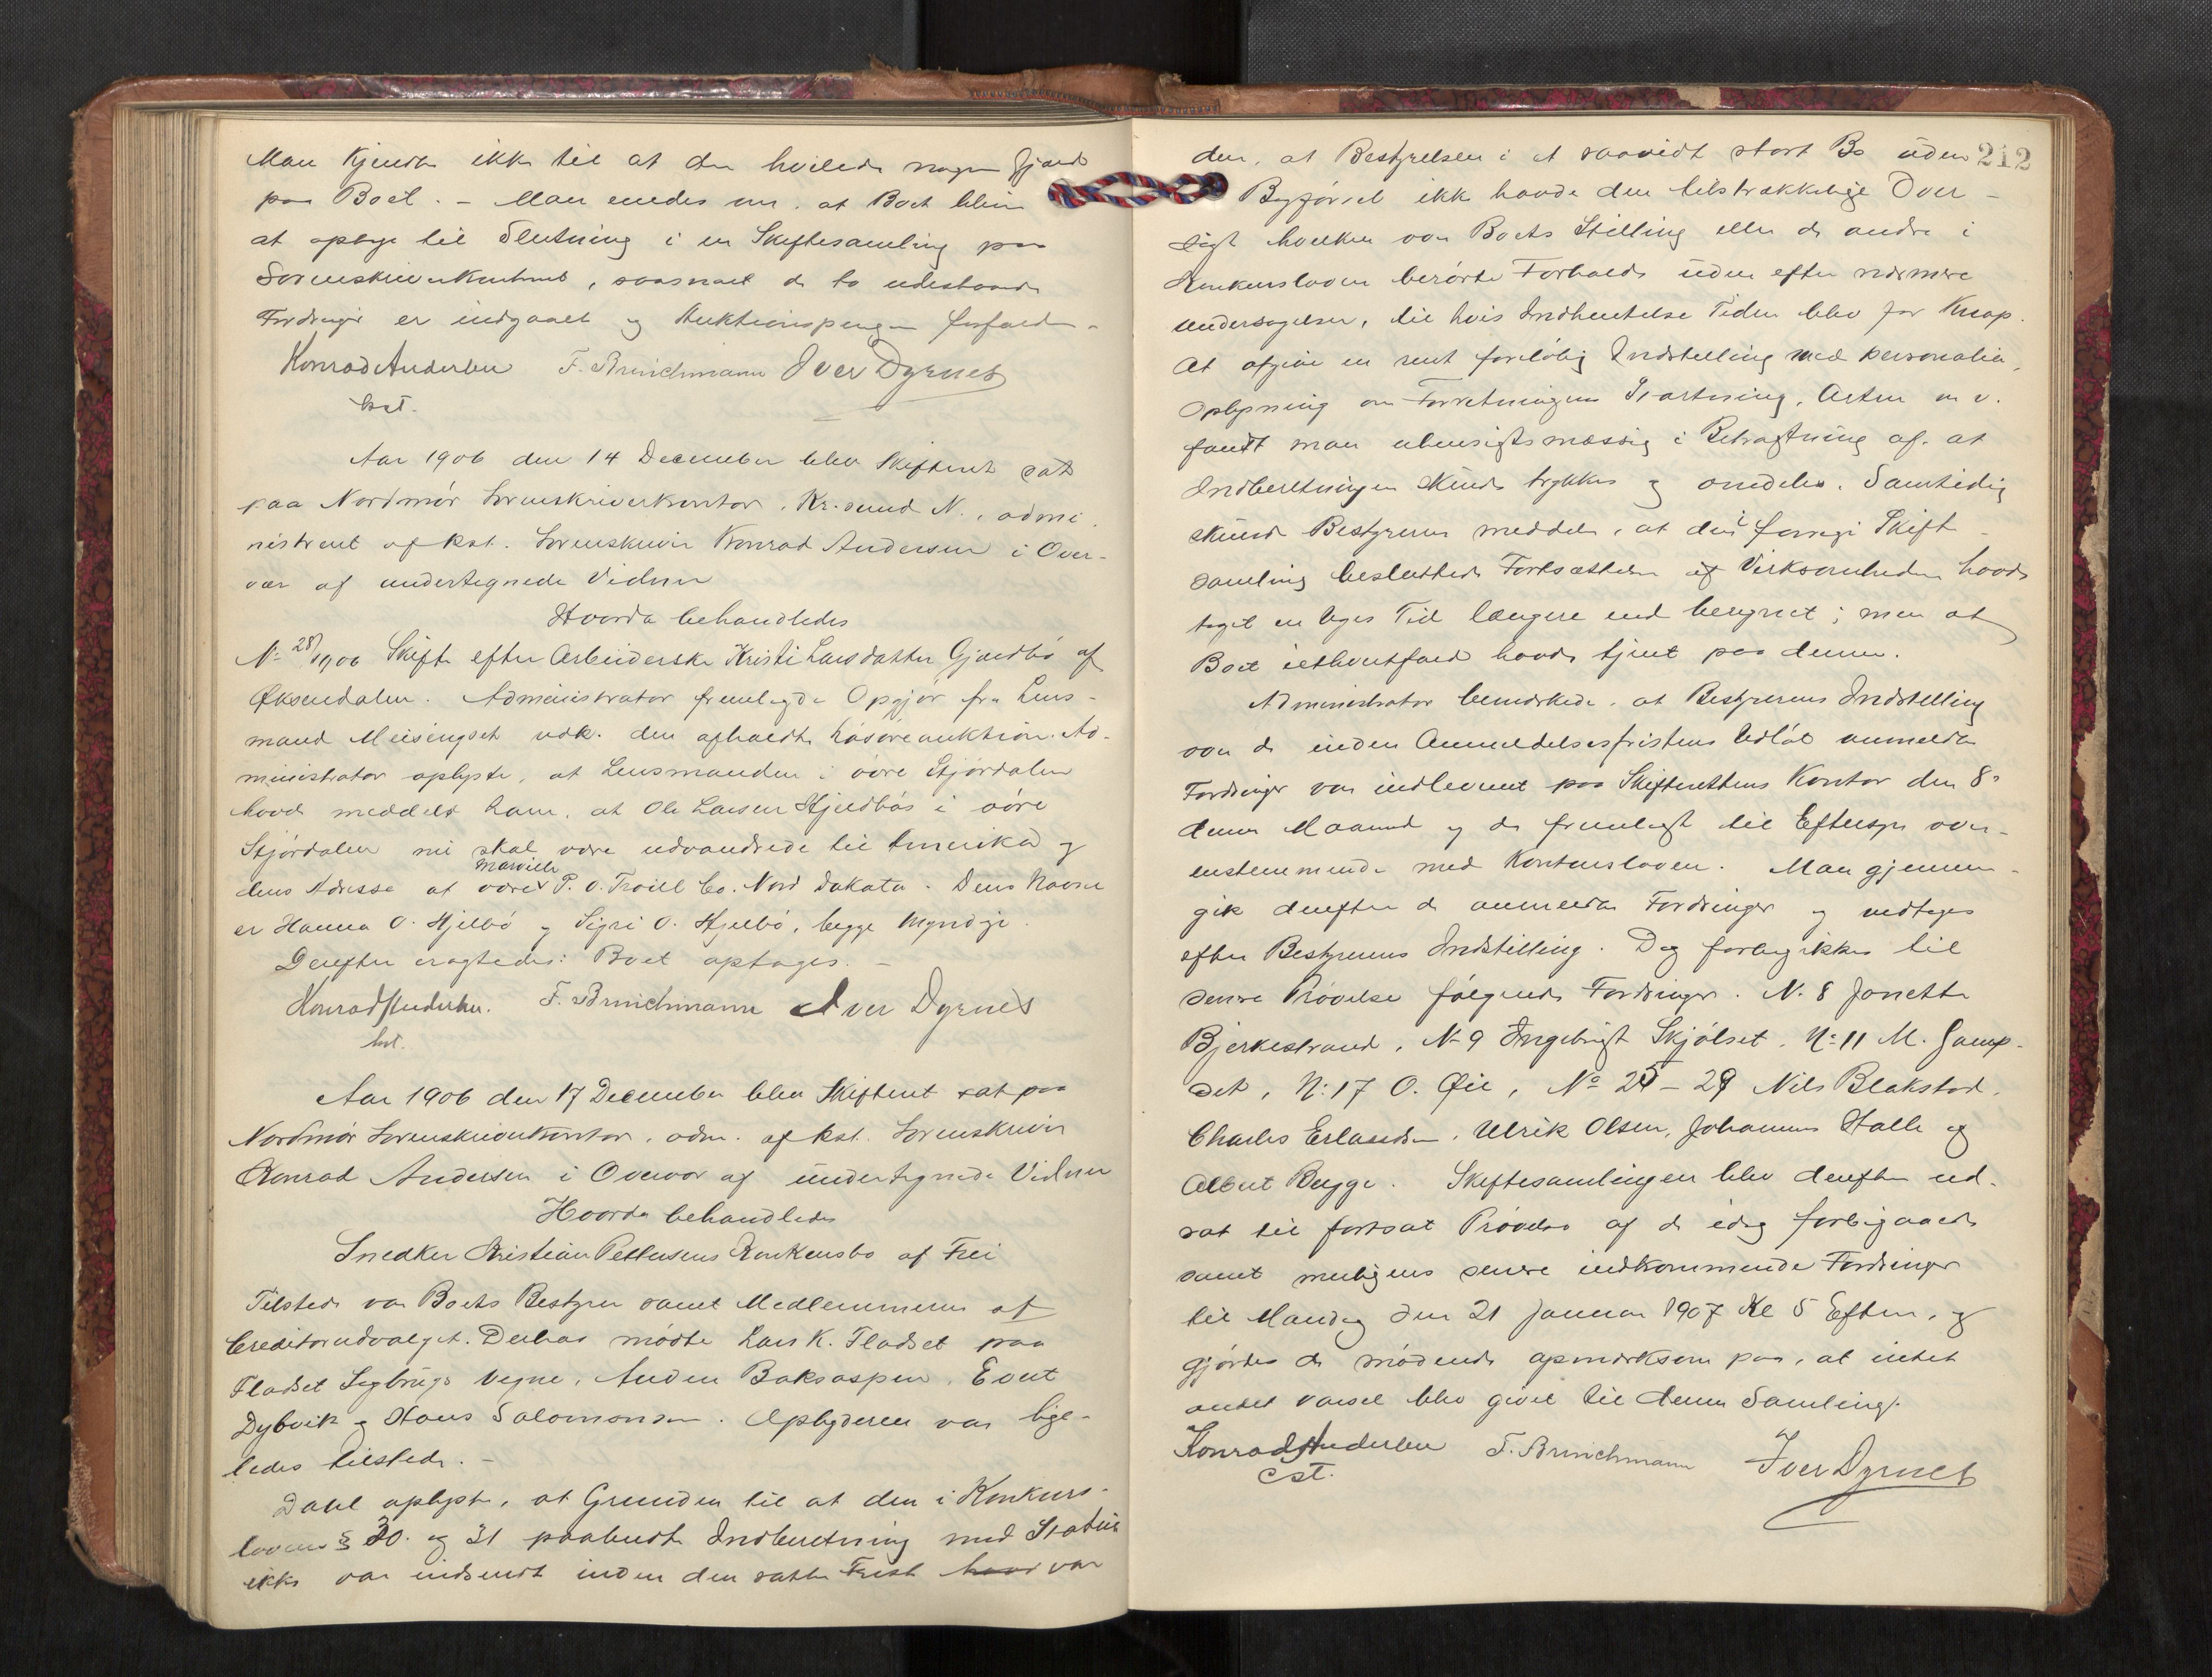 Man kjendte ikke til at der hvilede nogen Gjæld
paa Boet. – Man enedes om, at Boet blir
at optage til Slutning i en Skiftesamling paa
Sorenskriverkontoret, saasnart de to udestaaende
Fordringer er indgaaet og Auktionspengene forfaldne.
Konrad Andersen F. Brinchmann Iver Dyrnes
kst.
Aar 1906 den 14 December blev Skifteret sat
paa Nordmør Sorenskriverkontor, Kr.sund N., admi-
nistreret af kst. Sorenskriver Konrad Andersen i Over-
vær af undertegnede Vidner
Hvorda behandledes
N: 28/1906 Skifte efter Arbeiderske Kristi Larsdatter Gjeldbø af
Øksendalen. Administrator fremlagde Opgjør fra Lens-
mand Meisingset vedk. den afholdte Løsøreauktion. Ad-
ministrator oplyste, at Lensmanden i øvre Stjørdalen
havde meddelt ham, at Ole Larsen Hjeldbøs i øvre
Stjørdalen nu skal være udvandrede til Amerika og
deres Adresse at være Marville P. O. Traill Co. Nord Dakota. Deres Navne
er Hanna O. Hjelbø og Sigri O. Hjelbø, begge myndige.
Derefter eragtedes: Boet optages. –
Konrad Andersen. F. Brinchmann Iver Dyrnes
kst.
Aar 1906 den 17 December blev Skifteret sat paa
Nordmør Sorenskriverkontor, adm. af kst. Sorenskriver
Konrad Andersen i Overvær af undertegnede Vidner
Hvorda behandledes
Snedker Kristian Pettersens Konkursbo af Frei
Tilstede var Boets Bestyrer samt Medlemmerne af
Creditorudvalget. Derhos mødte Lars K. Fladset paa
Fladset Sagbrugs Vegne, Anders Boksaspen, Evert
Dybvik og Hans Salomonsen. Opbyderen var lige-
ledes tilstede. –
Dahl oplyste, at Grunden til at den i Konkurs-
loven § 30. og 31 paabudte Indberetning med Status
ikke var indsendt inden den satte Frist havd var
212
den, at Bestyrelsen i et saavidt stort Bo uden
Bogførsel ikke havde den tilstrækkelige Over-
sigt hverken over Boets Stilling eller de andre i
Konkursloven berørte Forholde uden efter nærmere
Undersøgelser, til hvis Indhentelse Tiden blev for knap.
At afgive en rent foreløbig Indstilling med personalia,
Oplysning om Forretningens Istartning, Arten m v.
fandt man uhensigtsmæssig i Betragtning af, at
Indberetningen skulde trykkes og omdeles. Samtidig
skulde Bestyreren meddele, at den i forrige Skift-
samling besluttede Fortsættelse af Virksomheden havde
taget en Uges Tid længere end beregnet; men at
Boet ialtfald havde tjent paa denne.
Administrator bemærkede, at Bestyrerens Indstilling
over de inden Anmeldelsesfristens Udløb anmeldte
Fordringer var indleveret paa Skifterettens Kontor den 8de
denne Maaned og da fremlagt til Eftersyn over-
ensstemmende med Konkursloven. Man gjennem-
gik derefter de anmeldte Fordringer og vedtoges
efter Bestyrerens Indstilling. Dog forbigikkes til
senere Prøvelse følgende Fordringer. N. 8 Jonetta
Bjerkestrand, N. 9 Ingebrigt Skjølset, N: 11 M. Gamp-
set, N: 17 O. Øie, No 25 – 29 Nils Blakstad,
Charles Erlandsen, Ulrik Olsen, Johannes Halle og
Albert Bugge. Skiftesamlingen blev derefter ud-
sat til fortsat Prøvelse af de idag forbigaaede
samt muligens senere indkommende Fordringer
til Mandag den 21 Januar 1907 Kl 5 Efterm, og
gjordes de mødende opmærksom paa, at intet
andet Varsel blev givet til denne Samling.
Konrad Andersen F. Brinchmann Iver Dyrnes
cst.